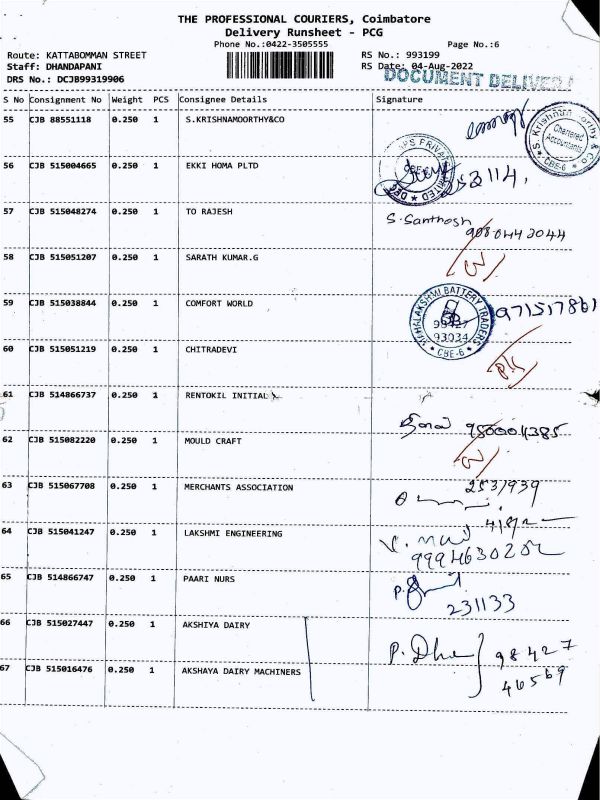 THE PROFESSIONAL COURIERS, Coimbatore
Delivery Runsheet - PCG
Phone No.:0422-3505555 Page No.:6
Route: KATTABOMMAN STREET RS No.: 993199
Staff: DHANDAPANI RS Date: 04-Aug-2022
DRS No.: DCJB99319906 DOCUMENT DELIVER
S No Consignment No Weight PCS Consignee Details Signature
55 CJB 88551118 0.250 1 S.KRISHNAMOORTHY&CO
Chartered Accountants CBE-6
56 CJB 515004665 0.250 1 EKKI HOMA PLTD
57 CJB 515048274 0.250 1 TO RAJESH S. Santhosh
58 CJB 515051207 0.250 1 SARATH KUMAR.G
59 CJB 515038844 0.250 1 COMFORT WORLD 971517861
MAHALAKSHMI BATTERY TRADERS CBE-6 93034
60 CJB 515051219 0.250 1 CHITRADEVI
61 CJB 514866737 0.250 1 RENTOKIL INITIAL
62 CJB 515082220 0.250 1 MOULD CRAFT
63 CJB 515067708 0.250 1 MERCHANTS ASSOCIATION 2531939
64 CJB 515041247 0.250 1 LAKSHMI ENGINEERING
65 CJB 514866747 0.250 1 PAARI NURS 231133
66 CJB 515027447 0.250 1 AKSHIYA DAIRY P. Dha 98427
67 CJB 515016476 0.250 1 AKSHAYA DAIRY MACHINERS 46569